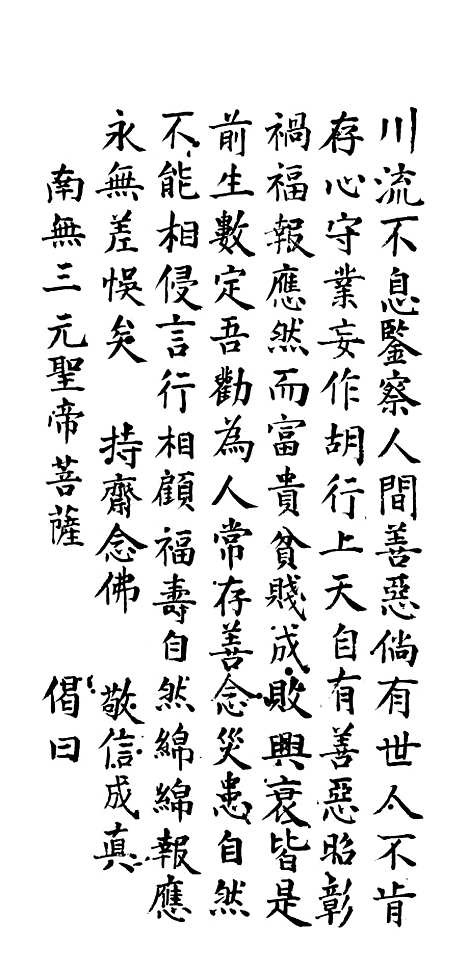 川流不息鑒察人間善惡倘有世人不肯
存心守業妄作胡行上天自有善惡昭彰
禍福報應然而富貴貧賤成敗興衰皆是
前生數定吾勸為人常存善念災患自然
不能相侵言行相顧福壽自然綿綿報應
永無差悞矣 持齋念佛 敬信成真
南無三元聖帝菩薩 偈曰